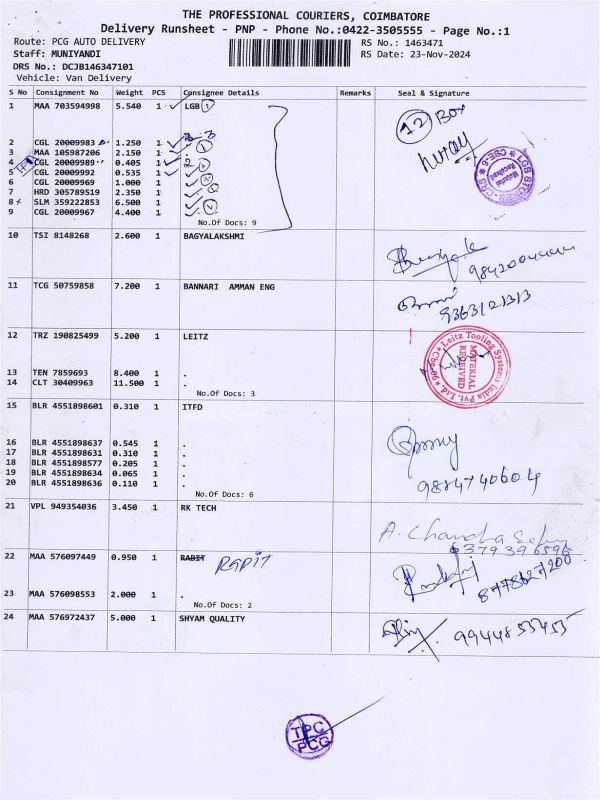 THE PROFESSIONAL COURIERS, COIMBATORE
Delivery Runsheet - PNP - Phone No.:0422-3505555 - Page No.:1
Route: PCG AUTO DELIVERY
RS No.: 1463471
Staff: MUNIYANDI
RS Date: 23-Nov-2024
DRS No.: DCJB146347101
Vehicle: Van Delivery
S No Consignment No Weight PCS Consignee Details Remarks Seal & Signature
1 MAA 703594998 5.540 1 LGB 1
12 Box
2 CGL 20009983 1.250 1 .
3 MAA 105987206 2.150 1 .
4 CGL 20009989 0.405 1 .
5 CGL 20009992 0.535 1 .
6 CGL 20009969 1.000 1 .
7 HRD 305789519 2.350 1 .
8 SLM 359222853 6.500 1 .
9 CGL 20009967 4.400 1 .
No.Of Docs: 9
LGB STORES CBE-6 CRS
Material Received
10 TSI 8148268 2.600 1 BAGYALAKSHMI
11 TCG 50759858 7.200 1 BANNARI AMMAN ENG
9363121313
12 TRZ 190825499 5.200 1 LEITZ
13 TEN 7859693 8.400 1 .
14 CLT 30409963 11.500 1 .
No.Of Docs: 3
Leitz Tooling Systems India Pvt. Ltd.
MATERIAL RECEIVED
15 BLR 4551898601 0.310 1 ITFD
16 BLR 4551898637 0.545 1 .
17 BLR 4551898631 0.310 1 .
18 BLR 4551898577 0.205 1 .
19 BLR 4551898634 0.065 1 .
20 BLR 4551898636 0.110 1 .
No.Of Docs: 6
9884740604
21 VPL 949354036 3.450 1 RK TECH
A. Chandra
22 MAA 576097449 0.950 1 RABIT RAPIT
23 MAA 576098553 2.000 1 .
No.Of Docs: 2
24 MAA 576972437 5.000 1 SHYAM QUALITY
9944853455
TPC
PCG